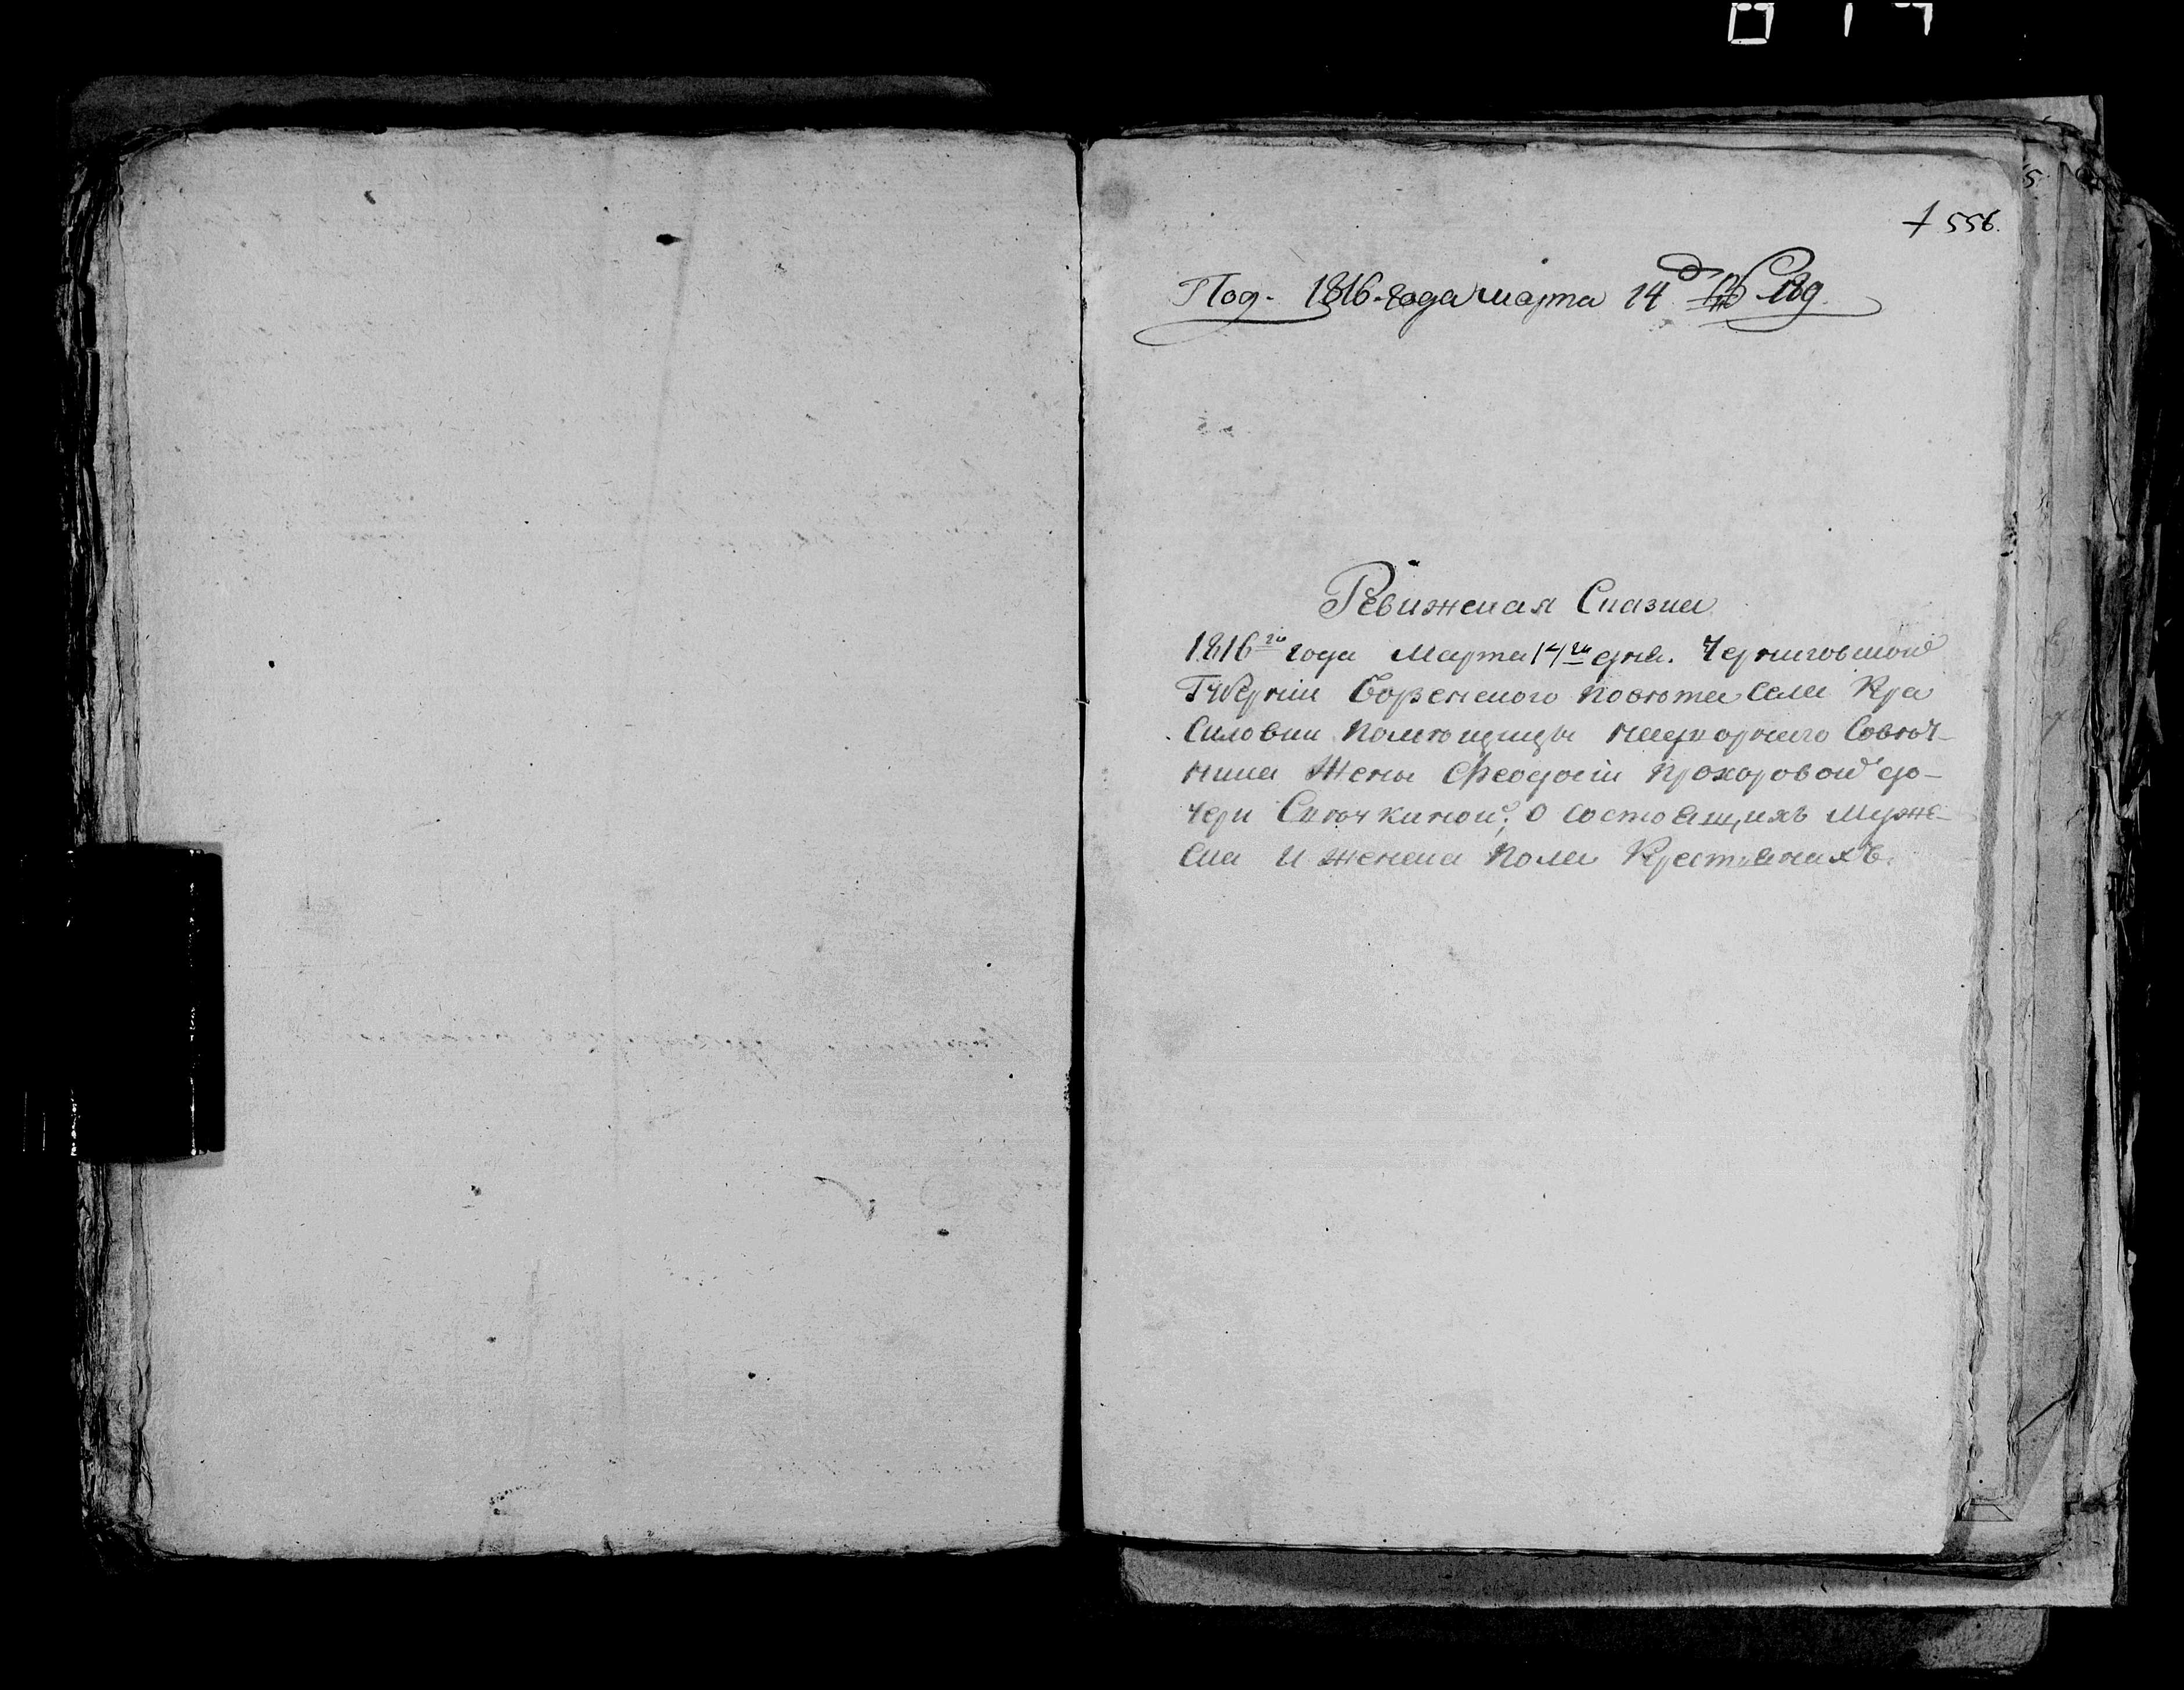 556.
Под. 1816. года марта 14 д № 189
Ревижская Сказка
1816го года Марта 14го дня. Черниговской
Губернии Борзенского повѣта села Кра
силовки помѣщицы надворного Совѣт-
ника Жены Феодосіи Прохоровой до-
чери Сѣчкиной, О состоящихъ Муже-
ска и женска пола Крестьянахъ.